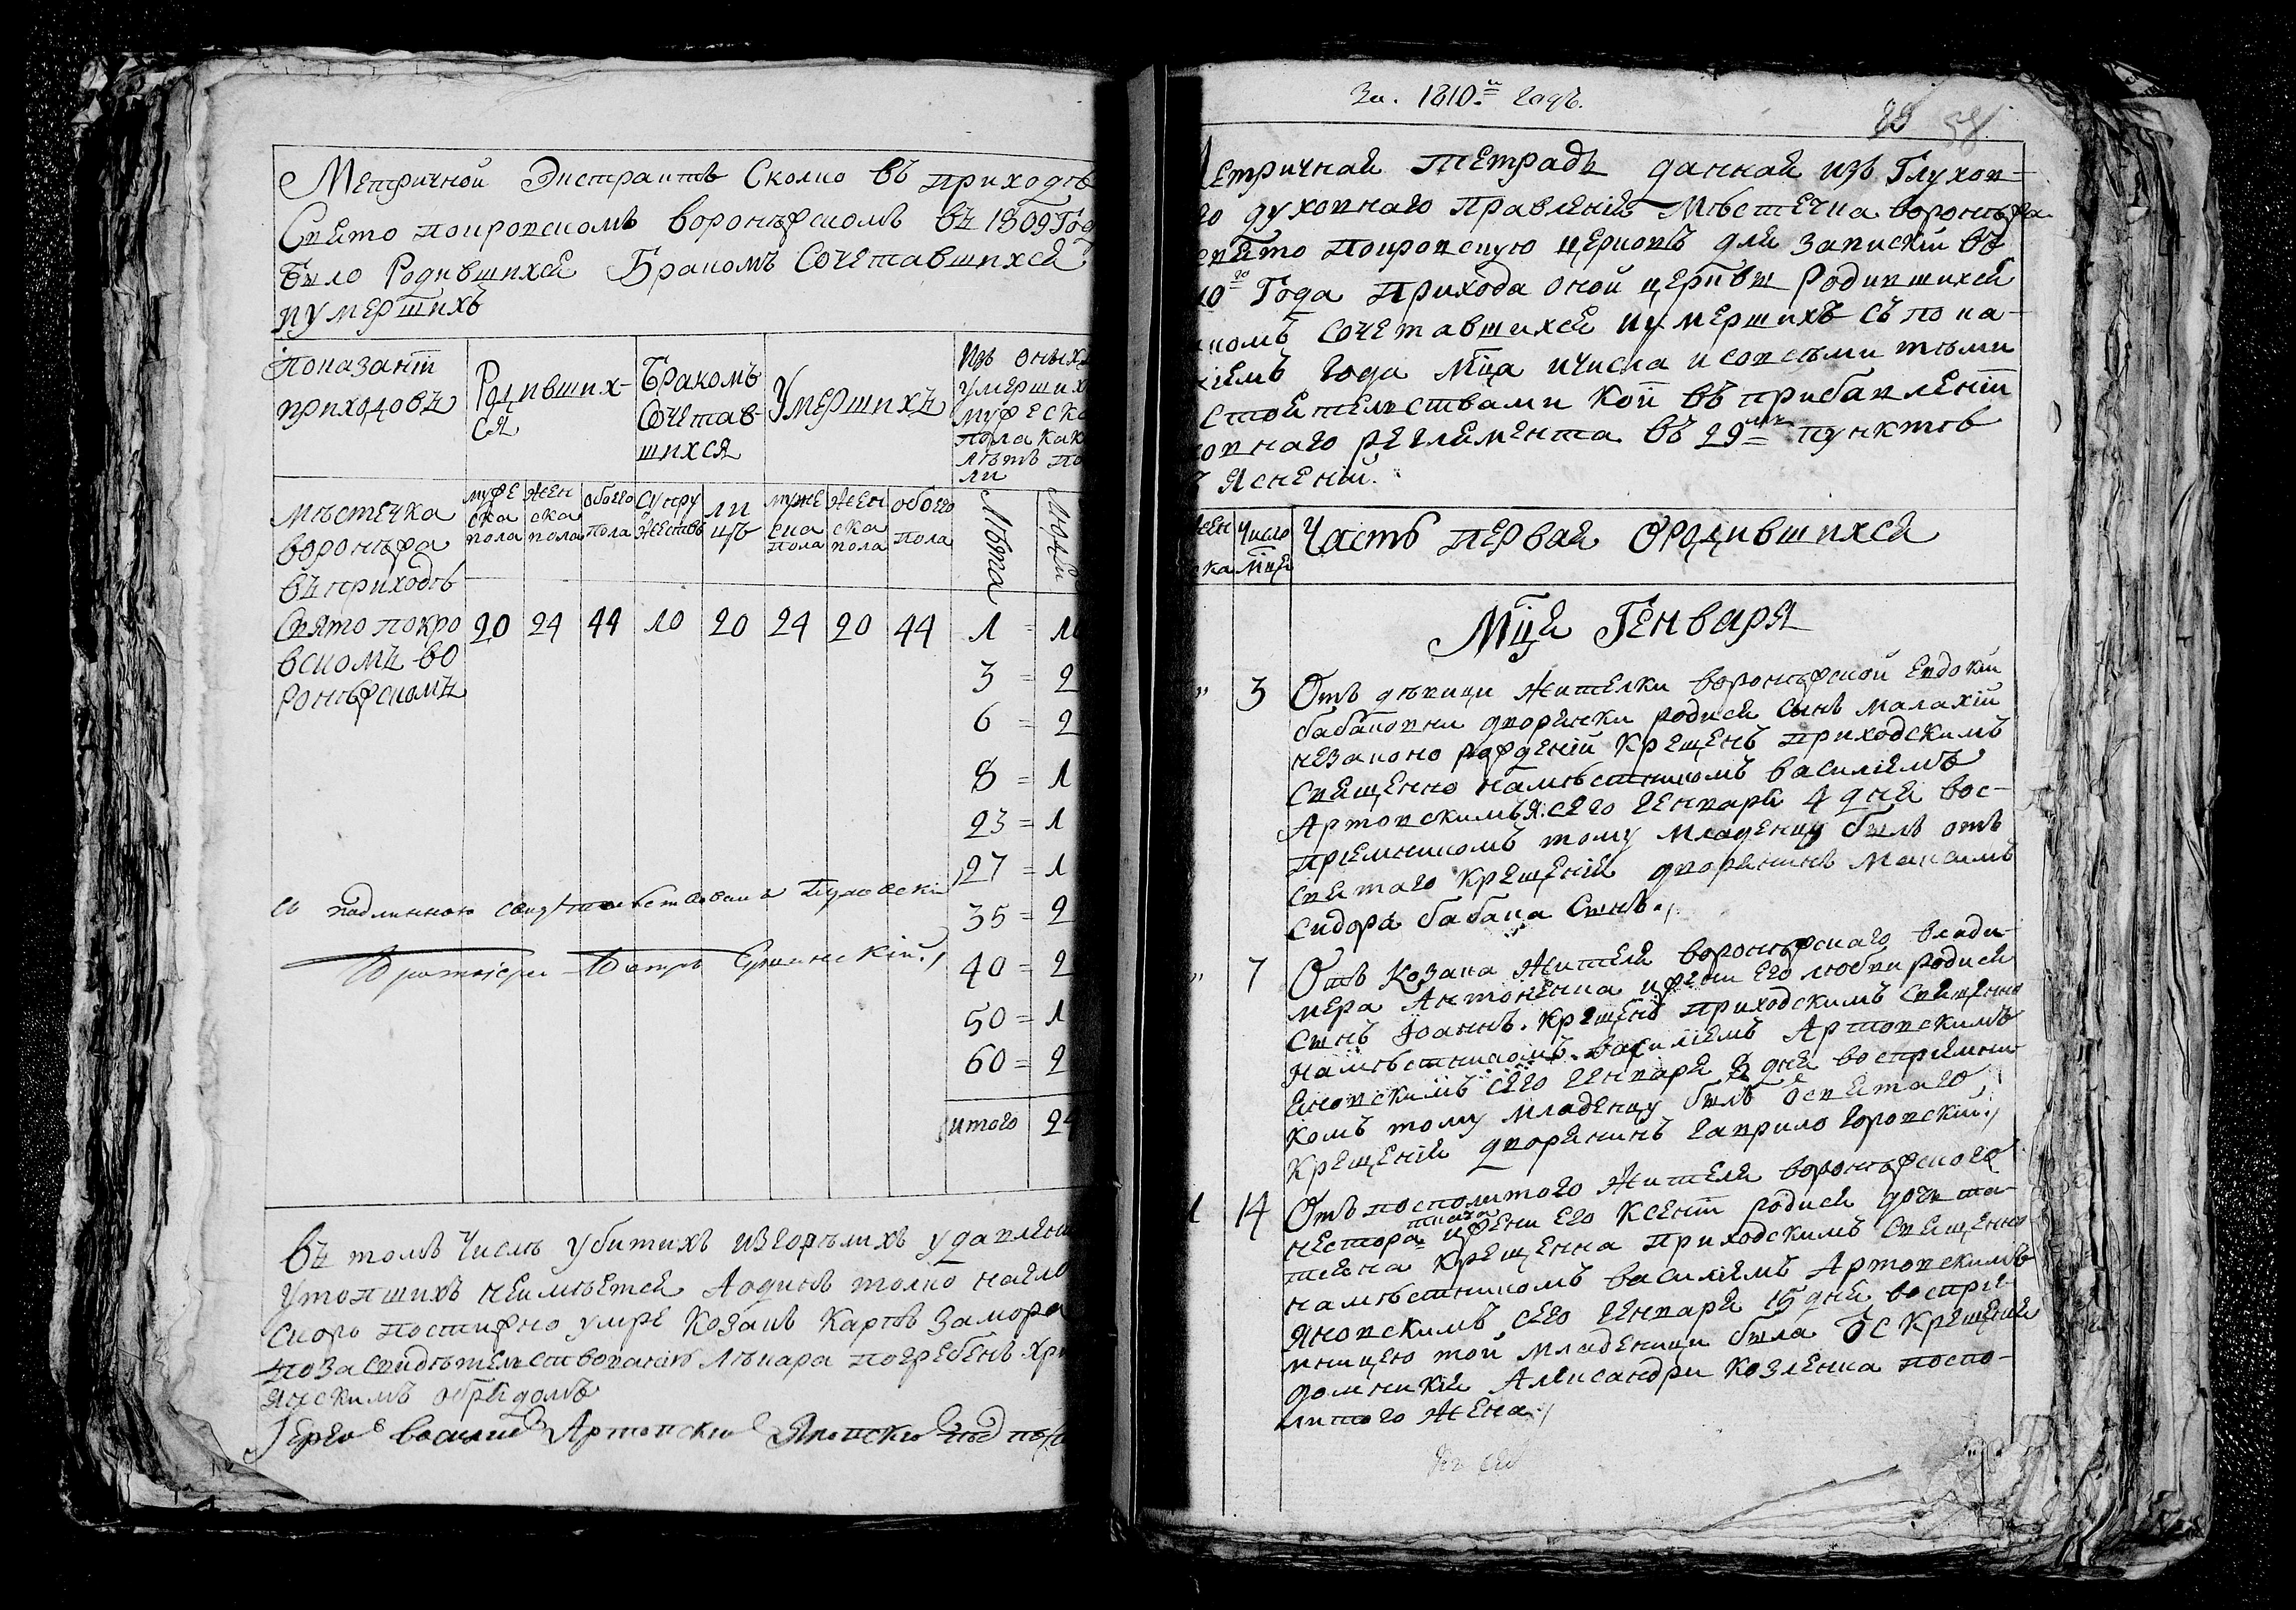 Метричной Экстрактъ Сколко въ приходѣ
Свято покровскомъ воронѣжскомъ въ 1809 Год
Было Родившихся Бракомъ Сочетавшихся
и умершихъ
Показаніи приходовъ
Родившихся
Бракомъ Сочетавшихся
Умершихъ
Изъ оныхъ
умерших
мужеска
пола как
лѣтъ по
ли
мужеска пола
женска пола
обоего пола
Супружествъ
лицъ
мужеска пола
женска пола
обоего пола
Лѣта
людей
мѣстечка
воронѣжа
въ приходѣ
Свято покро
вскомъ во
ронѣжскомъ
20 24 44 10 20 24 20 44
1 = 10
3 = 2
6 = 2
8 = 1
23 = 1
27 = 1
35 = 2
40 = 2
50 = 1
60 = 2
итого 24
Въ томъ числѣ убитихъ изгорѣлихъ удавлен
утопшихъ неимѣется Аодинъ толко наглѡ
скоро постижно умре козакъ Карпъ Замора
по засвидѣтелствованію лѣкара погребенъ Хри
янскимъ обрядомъ
Іерей василій Артовскій Яновскій
За 1810й Годъ.
58
Метричная Тетрадь данная изъ Глухов-
го духовнаго правленія мѣстечка воронѣжа
свято покровскую церковъ для записки въ
10го Года прихода оной церкви Родившихся
комъ сочетавшихся и умершихъ съ пока-
ніемъ года Мца и числа и совсѣми тѣми
стоятелствами кои въ прибавленіи
ховнаго регламента въ 29мъ пунктѣ
ясненни.
жен
ска
Число
Мця
Часть первая Ородившихся
Мця Генваря
3 Отъ дѣвици жителки воронѣжской Евдокіи
бабаковни дворянки родися сынъ Малахій
незаконо рожденій крещенъ приходскимъ
Священно намѣстникомъ василіемъ
Артовскимъ Я. сего генваря 4 дня вос-
пріемникомъ тому младенцу былъ отъ
святаго крещенія дворянинъ Максимъ
Сидора бабака Сынъ.
7 Отъ Козака жителя воронѣжскаго влади-
мера Антоненка и жени его любви родися
сынъ Іоаннъ. крещенъ приходскимъ священно
намѣстникомъ. василіемъ Артовскимъ
Яновскимъ сего генваря 8 дня воспріемни-
комъ тому младенцу былъ ѿ святаго
крещенія дворянинъ гаврило горовскій.
1 14 Отъ посполитого жителя воронѣжского
нестора ткача и жени его Ксеніи родися дочь та-
тіяна крещенна приходскимъ священно
намѣстникомъ василіемъ Артовскимъ
Яновскимъ сего генваря 15 дня воспріе-
мницею той младеници была ѿ с крещенія
домникія Алексадри Козленка поспо-
литого жена.